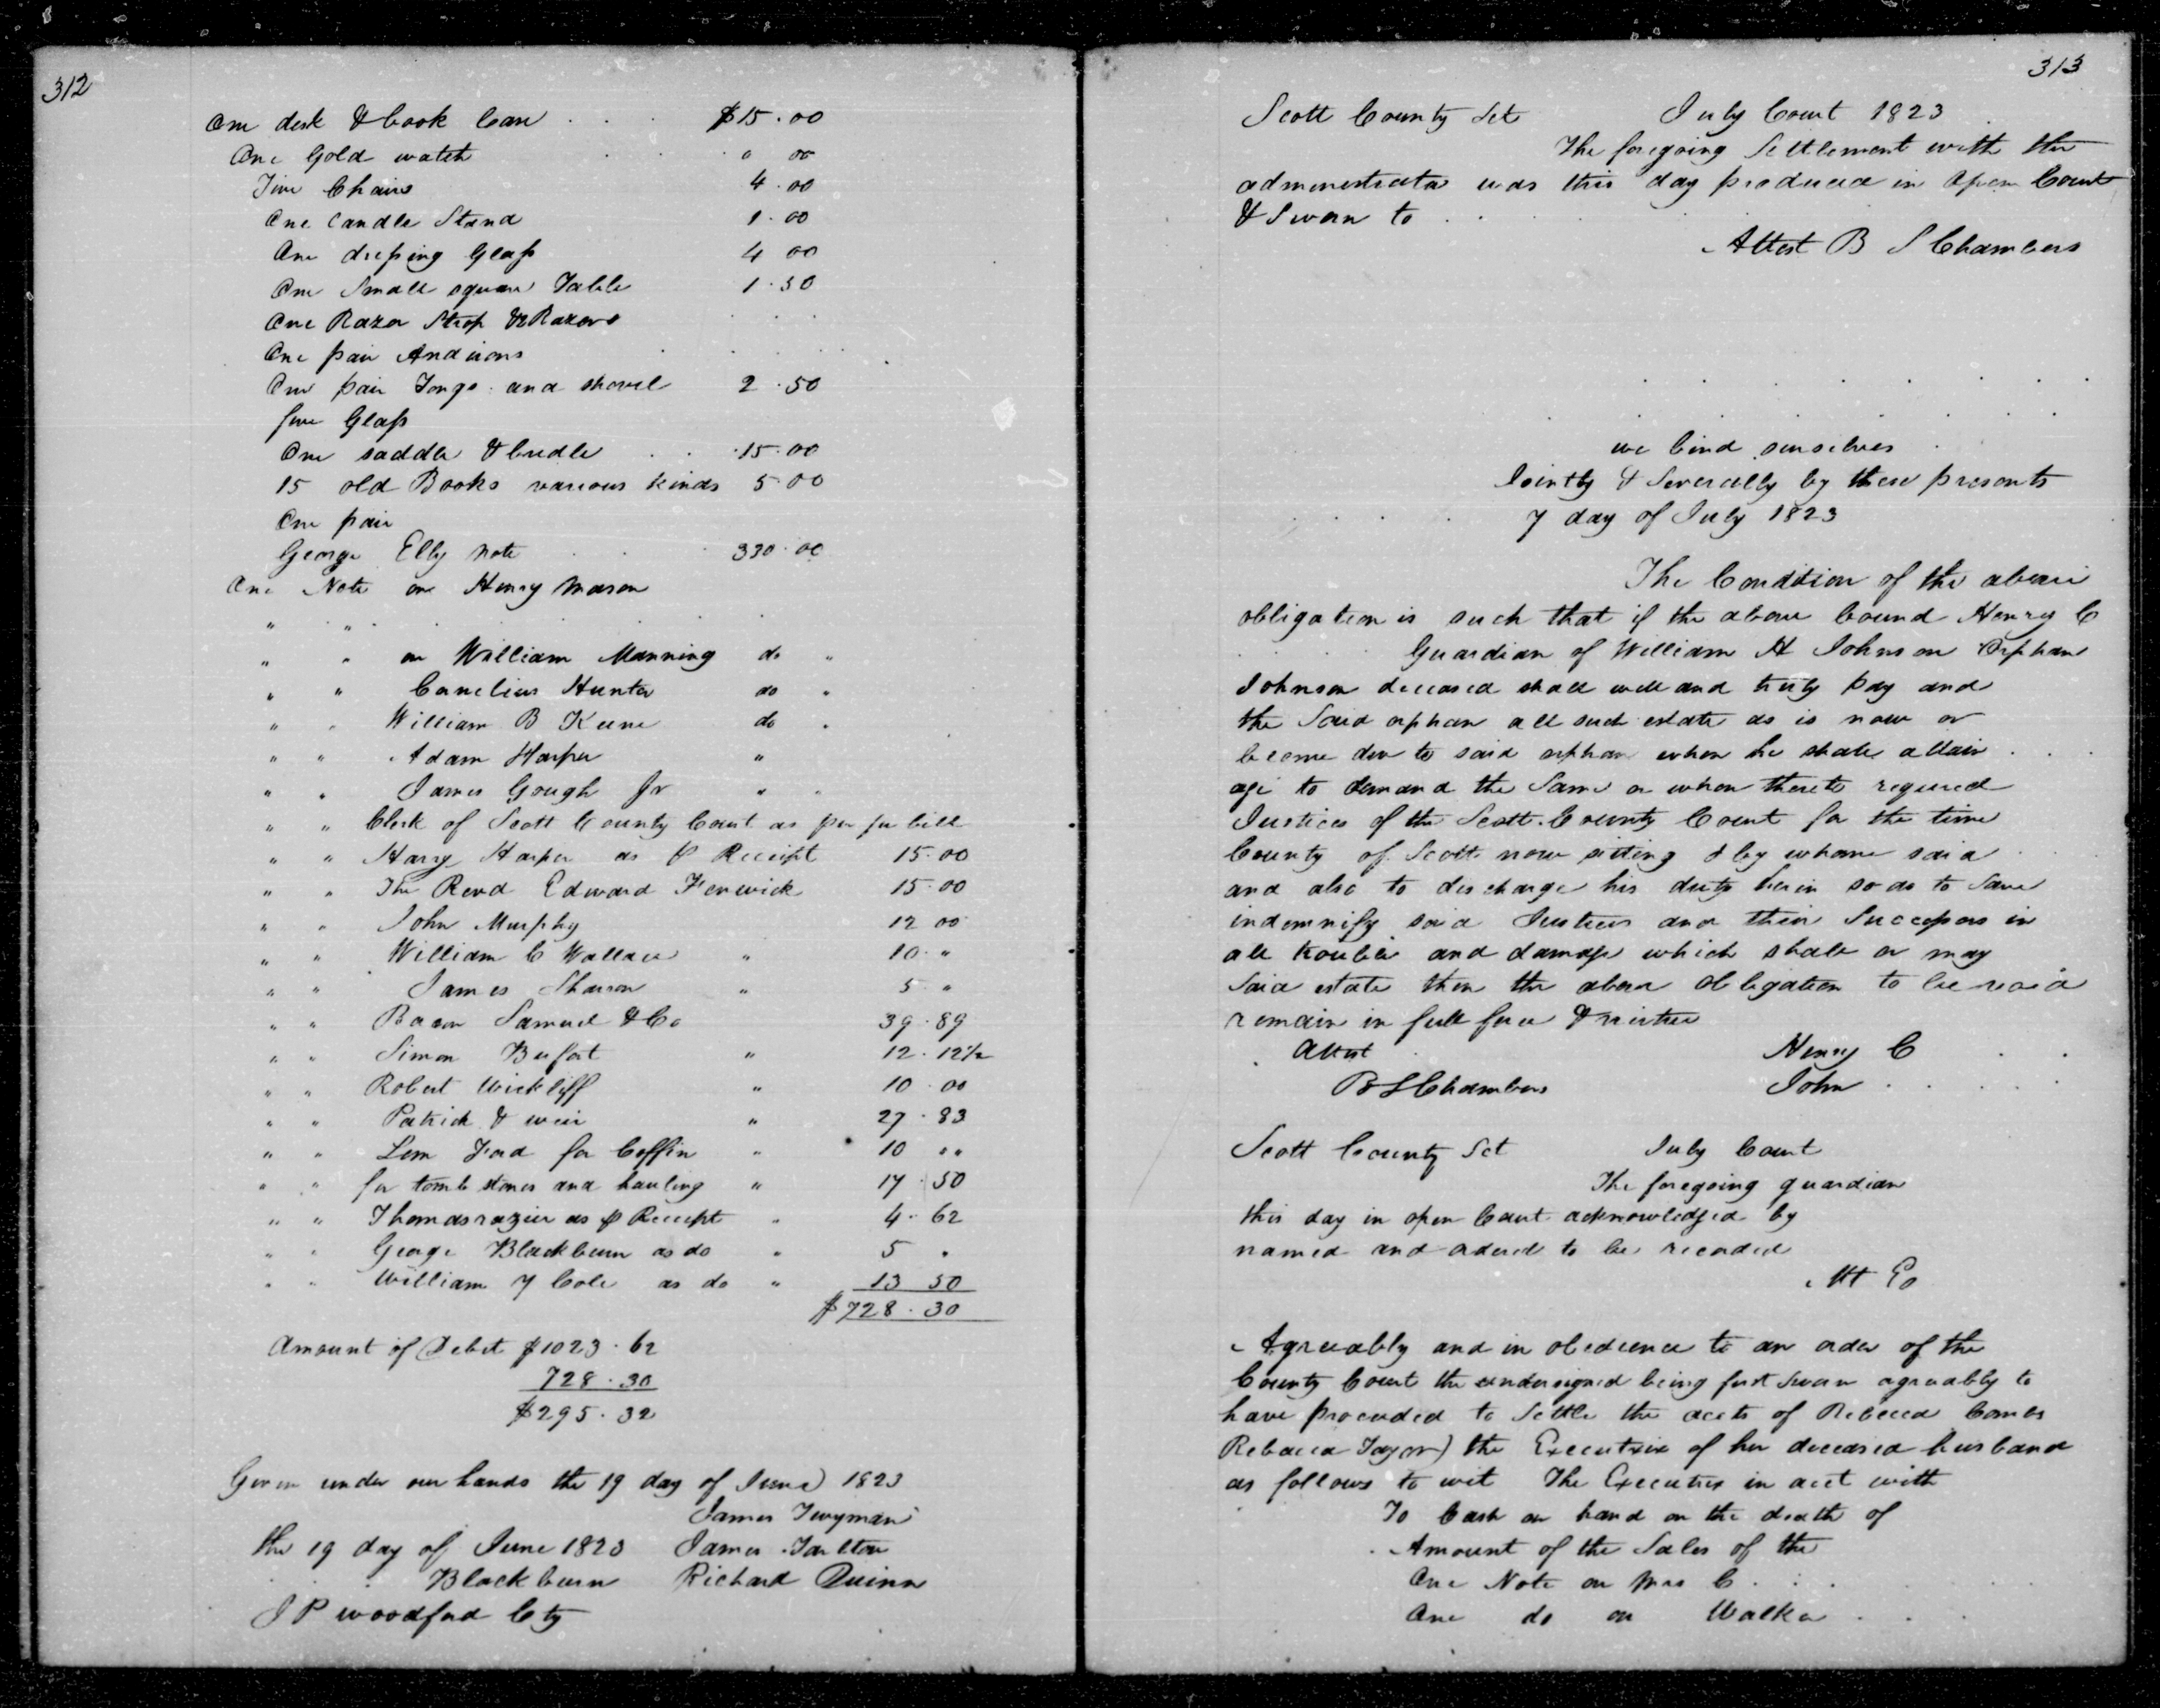 312
One desk & book Case $15.00
One Gold watch " 00
Five Chairs 4.00
One candle Stand 1.00
One dressing Glass 4 00
One Small square Table 1.50
One Razor Strop & Razors
One pair Andirons
One pair Tongs and shovel 2.50
five Glass
One saddle & bridle 15.00
15 old Books various kinds 5.00
One pair
George Elly note 330.00
One Note on Henry Mason
" "
" " on William Manning do "
" " Cornelius Hunter do "
" " William B Keene do "
" " Adam Harper "
" " James Gough Jr " "
" " Clerk of Scott County Court as per fee bill
" " Harry Harper as p Receipt 15.00
" " The Revd Edward Fenwick 15.00
" " John Murphy 12 00
" " William C Wallace " 10 "
" " James Sharron " 5 "
" " Bacon Samuel & Co 39.89
" " Simon Buford " 12.12½
" " Robert Wickliff " 10.00
" " Patrick & weir " 27.83
" " Lem Ford for Coffin " 10 ""
" " for tomb stones and hauling " 17.50
" " Thomas razier as p Receipt " 4.62
" " George Blackburn as do " 5 "
" " William 7 Cole as do " 13 50
$728.30
Amount of Debit $1023.62
728.30
$295.32
Given under our hands the 19 day of June 1823
James Twyman
the 19 day of June 1823 James Tarlton
Blackburn Richard Quinn
J P woodford Cty
313
Scott County Sct July Court 1823
The foregoing Settlement with the
administrator was this day produced in Open Court
& Sworn to
Attest B S Chambers
we bind ourselves
Jointly & Severally by these presents
7 day of July 1823
The Condition of the above
obligation is such that if the above bound Henry C
Guardian of William H Johnson Orphan
Johnson deceased shall well and truly pay and
the Said orphan all such estate as is now or
become due to said orphan when he shall attain
age to demand the Same or when thereto required
Justices of the Scott County Court for the time
County of Scott now sitting & by whom said
and also to discharge his duty herein so as to Save
indemnify said Justices and their Successors in
all trouble and damage which shall or may
Said estate then the above Obligation to be void
remain in full force & virtue
Attest Henry C
B S Chambers John
Scott County Sct July Court
The foregoing guardian
this day in open Court acknowledged by
named and ordered to be recorded
Att Co
Agreeably and in obedience to an order of the
County Court the undersigned being first Sworn agreeably to
have proceeded to Settle the accts of Rebecca Combs
Rebecca Taylor) the Executrix of her deceased husband
as follows to wit The Executrix in acct with
To Cash on hand on the death of
Amount of the Sales of the
One Note on Mrs C
One do on Walker